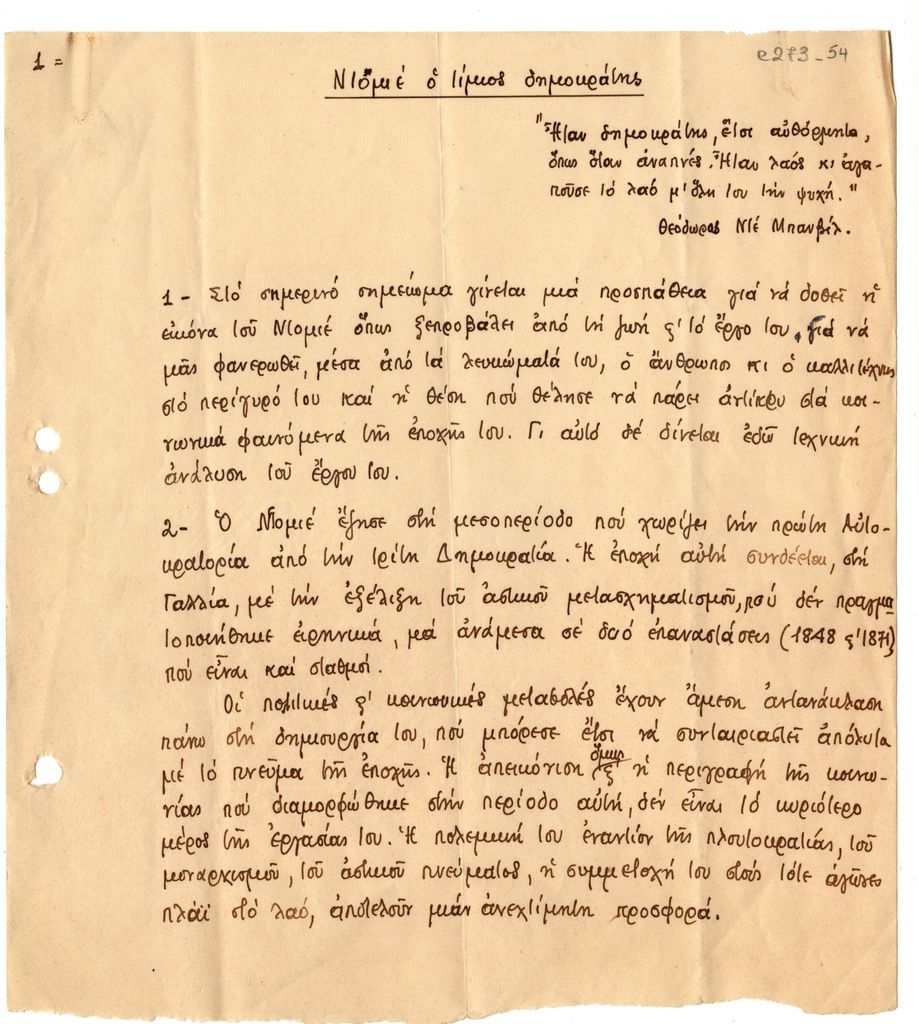 1 =
e273-54
Ντομιέ ὁ τίμιος δημοκράτης
"Ἦταν δημοκράτης, ἔτσι αὐθόρμητα,
ὅπως ὅταν ἀναπνές. Ἦταν λαός κι ἀγα-
ποῦσε τό λαό μ' ὅλη του τήν ψυχή."
Θεόδωρος Ντέ Μπανβίλ.
1 - Στό σημερινό σημείωμα γίνεται μιά προσπάθεια γιά νά δοθεῖ ἡ
εἰκόνα τοῦ Ντομιέ ὅπως ξεπροβάλει ἀπό τή ζωή ϛ' τό ἔργο του, γιά νά
μᾶς φανερωθεῖ, μέσα ἀπό τά λευκώματά του, ὁ ἄνθρωπος κι ὁ καλλιτέχνης
στό περίγυρό του καί ἡ θέση πού θέλησε νά πάρει ἀντίκρυ στά κοι-
νωνικά φαινόμενα τῆς ἐποχῆς του. Γι αὐτό δέ δίνεται ἐδῶ τεχνική
ἀνάλυση τοῦ ἔργου του.
2 - Ὁ Ντομιέ ἔζησε στή μεσοπερίοδο πού χωρίζει τήν πρώτη Αὐτο-
κρατορία ἀπό τήν τρίτη Δημοκρατία. Ἡ ἐποχή αὐτή συνδέεται, στή
Γαλλία, μέ τήν ἐξέλιξη τοῦ ἀστικοῦ μετασχηματισμοῦ, πού δέν πραγμα
τοποιήθηκε εἰρηνικά, μά ἀνάμεσα σέ δυό ἐπαναστάσεις (1848 ϛ' 1871)
πού εἶναι καί σταθμοί.
Οἱ πολιτικές ϛ' κοινωνικές μεταβολές ἔχουν ἄμεση ἀντανάκλαση
πάνω στή δημιουργία του, πού μπόρεσε ἔτσι νά συνταιριαστεῖ ἀπόλυτα
μέ τό πνεῦμα τῆς ἐποχῆς. Ἡ ἀπεικόνιση ὅμως ϛ' ἡ περιγραφή τῆς κοινω-
νίας πού διαμορφώθηκε στήν περίοδο αὐτή, δέν εἶναι τό κυριότερο
μέρος τῆς ἐργασίας του. Ἡ πολεμική του ἐναντίον τῆς πλουτοκρατίας, τοῦ
μοναρκισμοῦ, τοῦ ἀστικοῦ πνεύματος, ἡ συμμετοχή του στούς τότε ἀγῶνες
πλάϊ στό λαό, ἀποτελοῦν μιάν ἀνεχτίμητη προσφορά.